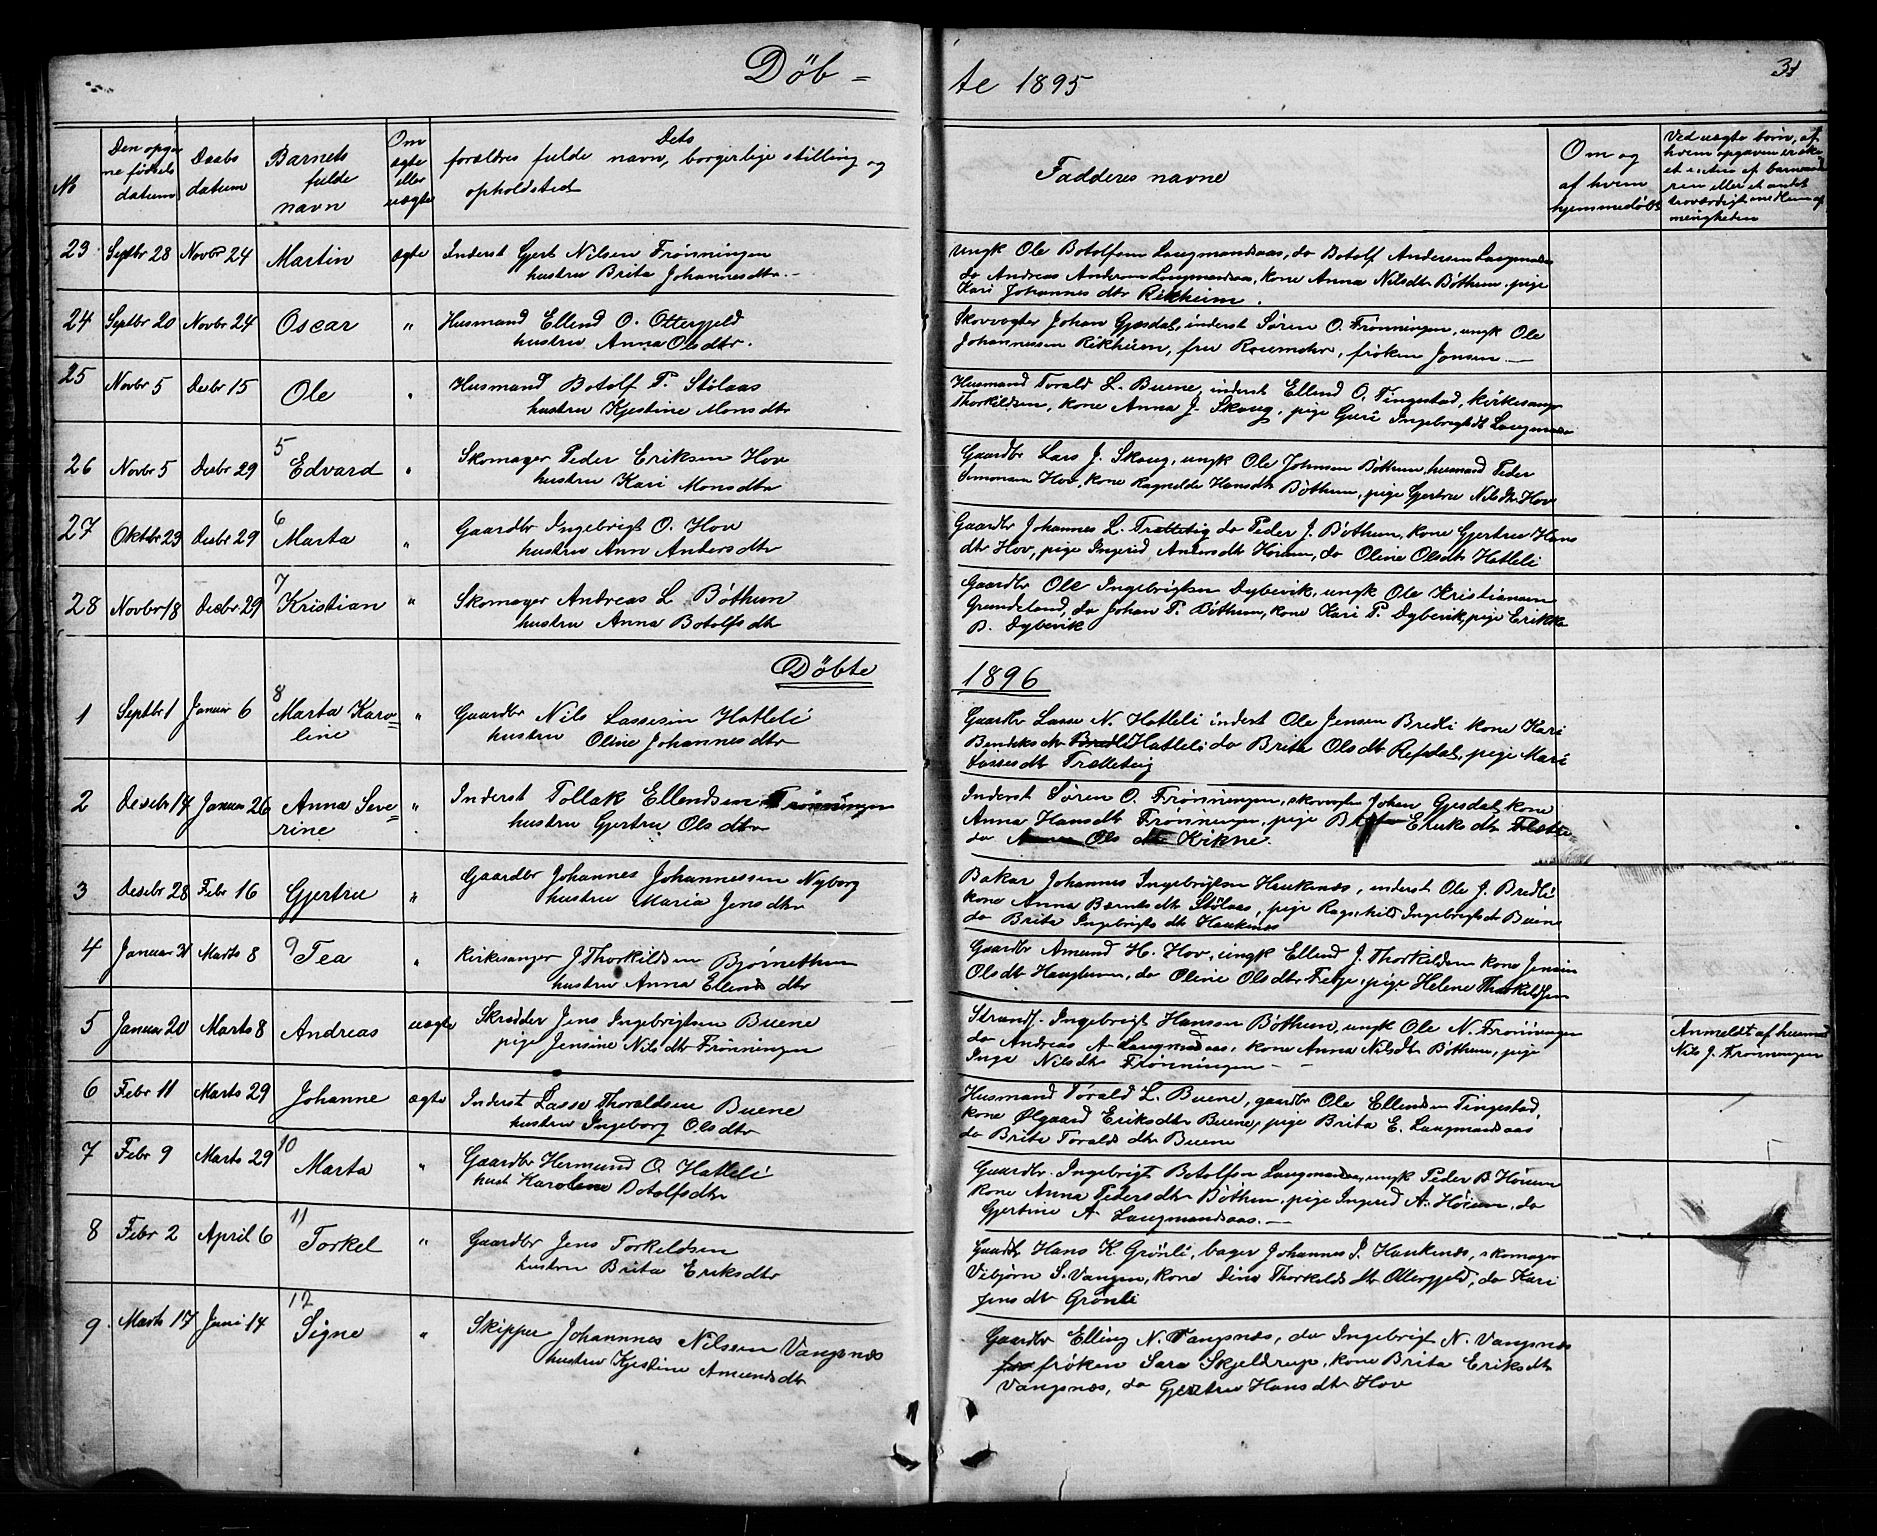 Döb = te 1895
31
No
Den opgiv
ne fødsels
datum
Daabs
datum
Barnets
fulde
navn
Om
ægte
eller
uægte
Dets
forældres fulde navn, borgerlige stilling og
opholdsted
Fadderes navne
Om og
af hvem
hjemmedøbt
Ved uægte børn, af
hvem opgaven er ske
eller et andet
troværdigt medlem af
menigheden
23 Septbr 28 Novbr 24 Martin ægte Inderst Gjert Nilsen Frønningen
hustru Brita Johannesdtr.
ungk Ole Botolfsen Laugmandsaas, do Botolf Andersen Laugmandsaas
do Andreas Andersen Laugmandsaas, kone Anna Nilsdtr Bøthun, pige
Kari Johannesdtr Rikheim.
24 Septbr 20 Novbr 24 Oscar " Husmand Ellend O. Ottergjeld
hustru Anna Olsdtr.
Skovvogter Johan Gjesdal, inderst Søren O. Frønningen, ungk Ole
Johannessen Rikheim, fru, frøken Jonsen
25 Novbr 5 Desbr 15 Ole " Husmand Botolf P. Stølaas
hustru Kjestine Monsdtr
Husmand Torald L. Buene, inderst Ellend O. Tingestad, kirkesanger
Thorkildsen, kone Anna J. Skaug, pige Guri Ingebrigtsdt Laugmandsaas
26 Novbr 5 Desbr 29 5 Edvard " Skomager Peder Eriksen Hov
hustru Kari Monsdtr
Gaardbr Lars J. Skaug, ungk Ole Johnsen Bøthun, husmand Peder
Simonsen Hov, kone Ragnilde Hansdtr Bøthun, pige Gjertru Nilsdtr Hov
27 Oktbr 23 Desbr 29 6 Marta " Gaardbr Ingebrigt O. Hov
hustru Ann Andersdtr
Gaardbr Johannes L. Trælleteig do Peder J. Bøthun, kone Gjertru Hans
dtr Hov, pige Ingerid Andersdtr Høium, do Oline Olsdtr Hatleli
28 Novbr 18 Desbr 29 7 Kristian " Skomager Andreas L Bøthun
hustru Anna Botolfsdtr
Gaardbr Ole Ingebrigtsen Dybevik, ungk Ole Kristiansen
Grundeland, do Johan P. Bøthun, kone Kari P. Dybevik, pige Erikka
B. Dybevik
Döbte 1896
1 Septbr 1 Januar 6 8 Marta Karo=
line " Gaardbr Nils Lassesen Hatleli
hustru Oline Johannesdtr
Gaardbr Lasse N. Hatleli inderst Ole Jensen Bredli kone Kari
Bendiksdtr Bredli Hatleli do Brita Olsdtr Refsdal, pige Mari
Lassesdt Trælleteig
2 Desbr 14 Januar 26 Anna Seve=
rine " Inderst Tollak Ellendsen Frønningen
hustru Gjertru Olsdtr
Inderst Søren O. Frønningen, skovvogter Johan Gjesdal, kone
Anna Hansdtr Frønningen, pige Brita Eriksdtr
do Olsdtr Kirkne.
3 Desbr 28 Febr 16 Gjertru " Gaardbr Johannes Johannessen Nyborg
hustru Maria Jensdtr
Bakar Johannes Ingebrigtsen Haukenæs, inderst Ole J. Bredli
kone Anna Berntsdtr Stølaas, pige Ragnhild Ingebrigtsdtr Buene
do Brita Ingebrigtsdtr Haukenæs
4 Januar 31 Marts 8 9 Tea " Kirkesanger J Thorkildsen Bjørnethun
hustru Anna Ellendsdtr
Gaardbr Amund H. Hov, ungk Ellend J. Thorkildsen kone Jensin
Olsdt, do Oline Olsdtr Fetje, pige Helene Thorkildsen
5 Januar 20 Marts 8 Andreas uægte Skrædder Jens Ingebrigtsen Buene
pige Jensine Nilsdtr Frønningen
Strandf. Ingebrigt Hansen Bøthun, ungk Ole N. Frønningen
do Andreas A. Laugmandsaas, kone Anna Nilsdtr Bøthun, pige
Inge Nilsdtr Frønningen
Anmeldt af husmand
Nils J. Frønningen
6 Febr 11 Marts 29 Johanne ægte Inderst Lasse Thoraldsen Buene
hustru Ingeborg Olsdtr
Husmand Torald L. Buene, gaardbr Ole Ellendsen Tingestad,
kone Ølgaard Eriksdtr Buene, pige Brita E. Laugmandsaas
do Brita Toraldsdtr Buene
7 Febr 9 Marts 29 10 Marta " Gaardbr Hermund O. Hatleli
hust Karolene Botolfsdtr
Gaardbr. Ingebrigt Botolfsen Laugmandsaas, ungk Peder B Høium
kone Anna Pedersdtr Bøthun, pige Ingerid A. Høium, do
Gjertine A. Laugmandsaas.
8 Febr 2 April 6 11 Torkel " Gaardbr Jens Torkeldsen
hustru Brita Eriksdtr
Gaardb Hans K. Grønli, bager Johannes I. Haukenæs, skomager
Vibjørn S. Vangen, kone Sina Thorkeldsdtr Ottergjeld, do Kari
Jensdtr Grønli
9 Marts 17 Juni 14 12 Signe " Skipper Johannnes Nilsen Vangsnæs
hustru Kjestine Amundsdtr
Gaardbr Elling N. Vangsnæs, do Ingebrigt N. Vangsnæs
fru frøken Sara Skjeldrup, kone Brita Eriksdtr
Vangsnæs, do Gjertru Hansdtr Hov